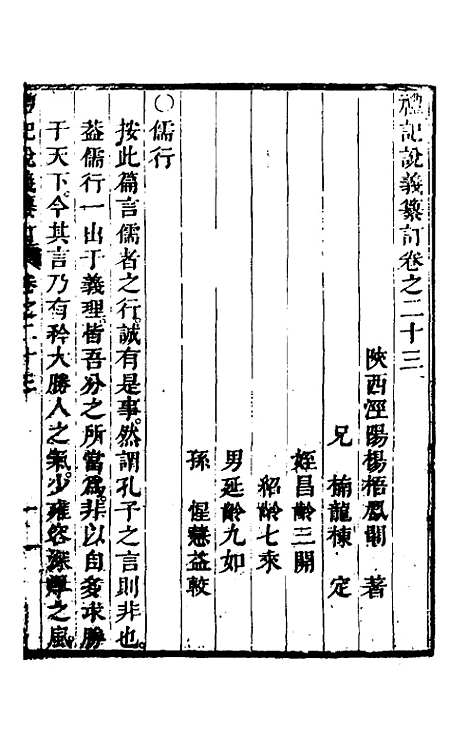 禮記說義纂訂卷之二十三
陝西涇陽楊梧鳳閣 著
兄 楠龍棟 定
姪昌齡三開
紹齡七來
男延齡九如
孫 惺慧益較
○儒行
按此篇言儒者之行誠有是事然謂孔子之言則非也。
葢儒行一出于義理皆吾分之所當為非以自多求勝
于天下。今其言乃有矜大勝人之氣少雍容深厚之風。
禮記說義纂訂 卷之二十三 一